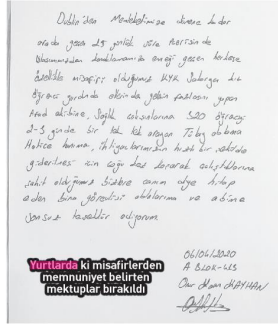 Dublin'den Memleketimize dönene kadar
arada geçen 25 günlük süre içerisinde
emeği geçen herkese
özellikle misafiri olduğumuz KYK Sakarya kız
öğrenci yurdunda
Afad ekibine, Sağlık çalışanlarına 520 öğrenciyi
2-3 günde bir tek tek arayan Tülay ablama
Hatice hanıma, ihtiyaçlarımızın hızlı bir şekilde
giderilmesi için çalıştıklarına
şahit olduğumuz bizlere canım diye hitap
eden bina görevlisi ablalarıma ve abime
sonsuz teşekkür ediyorum
06/04/2020
A BLOK-413
KAYHAN
Yurtlarda ki misafirlerden
memnuniyet belirten
mektuplar bırakıldı